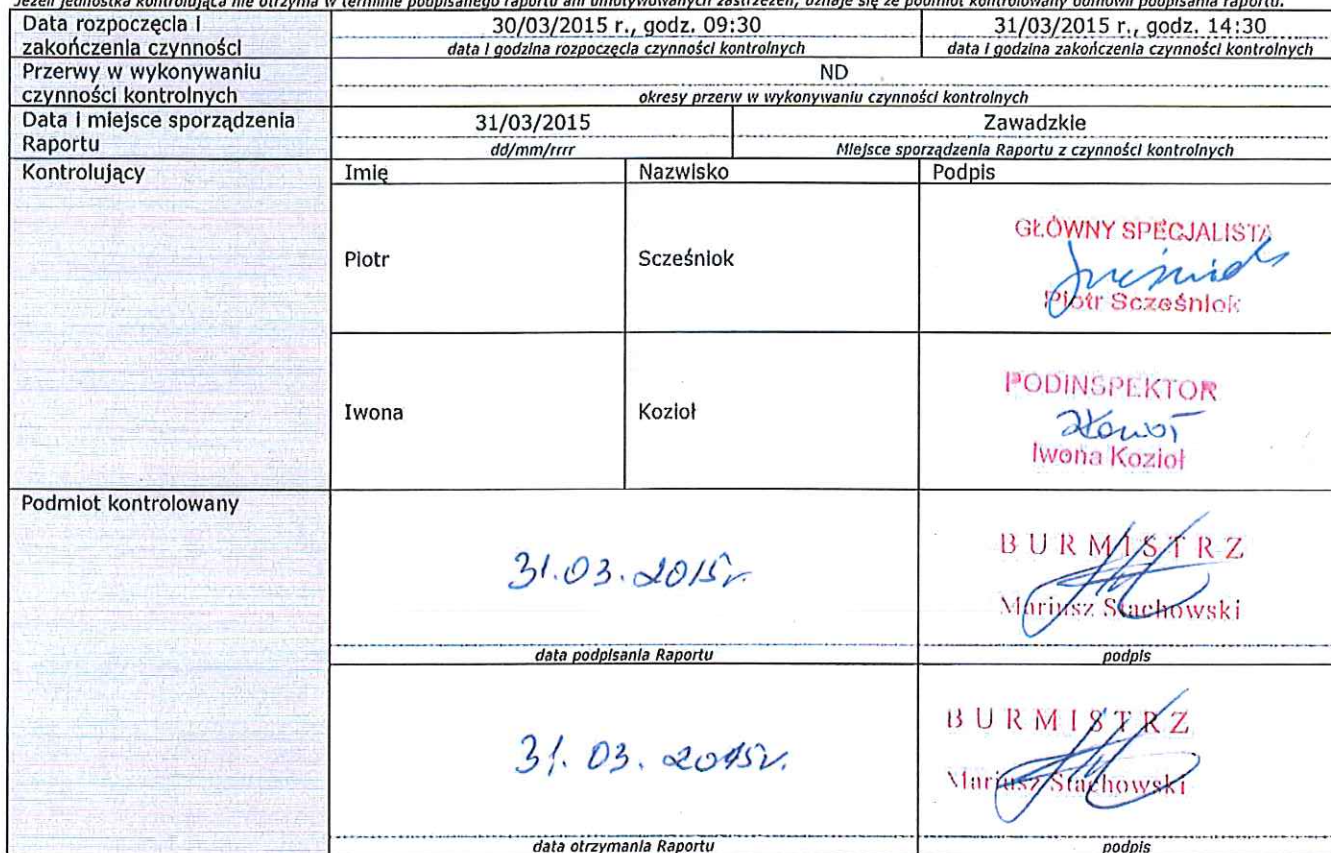 Jeżeli jednostka kontrolująca nie otrzyma w terminie podpisanego raportu ani umotywowanych zastrzeżeń, uznaje się że podmiot kontrolowany odmówił podpisania raportu.
Data rozpoczęcia i zakończenia czynności
30/03/2015 r., godz. 09:30
data i godzina rozpoczęcia czynności kontrolnych
31/03/2015 r., godz. 14:30
data i godzina zakończenia czynności kontrolnych
Przerwy w wykonywaniu czynności kontrolnych
ND
okresy przerw w wykonywaniu czynności kontrolnych
Data i miejsce sporządzenia Raportu
31/03/2015
dd/mm/rrrr
Zawadzkie
Miejsce sporządzenia Raportu z czynności kontrolnych
Kontrolujący
Imię
Nazwisko
Podpis
Piotr
Scześniok
GŁÓWNY SPECJALISTA
Piotr Scześniok
Iwona
Kozioł
PODINSPEKTOR
Iwona Kozioł
Podmiot kontrolowany
31.03.2015r.
BURMISTRZ
Mariusz Stachowski
data podpisania Raportu
podpis
31.03.2015r.
BURMISTRZ
Mariusz Stachowski
data otrzymania Raportu
podpis